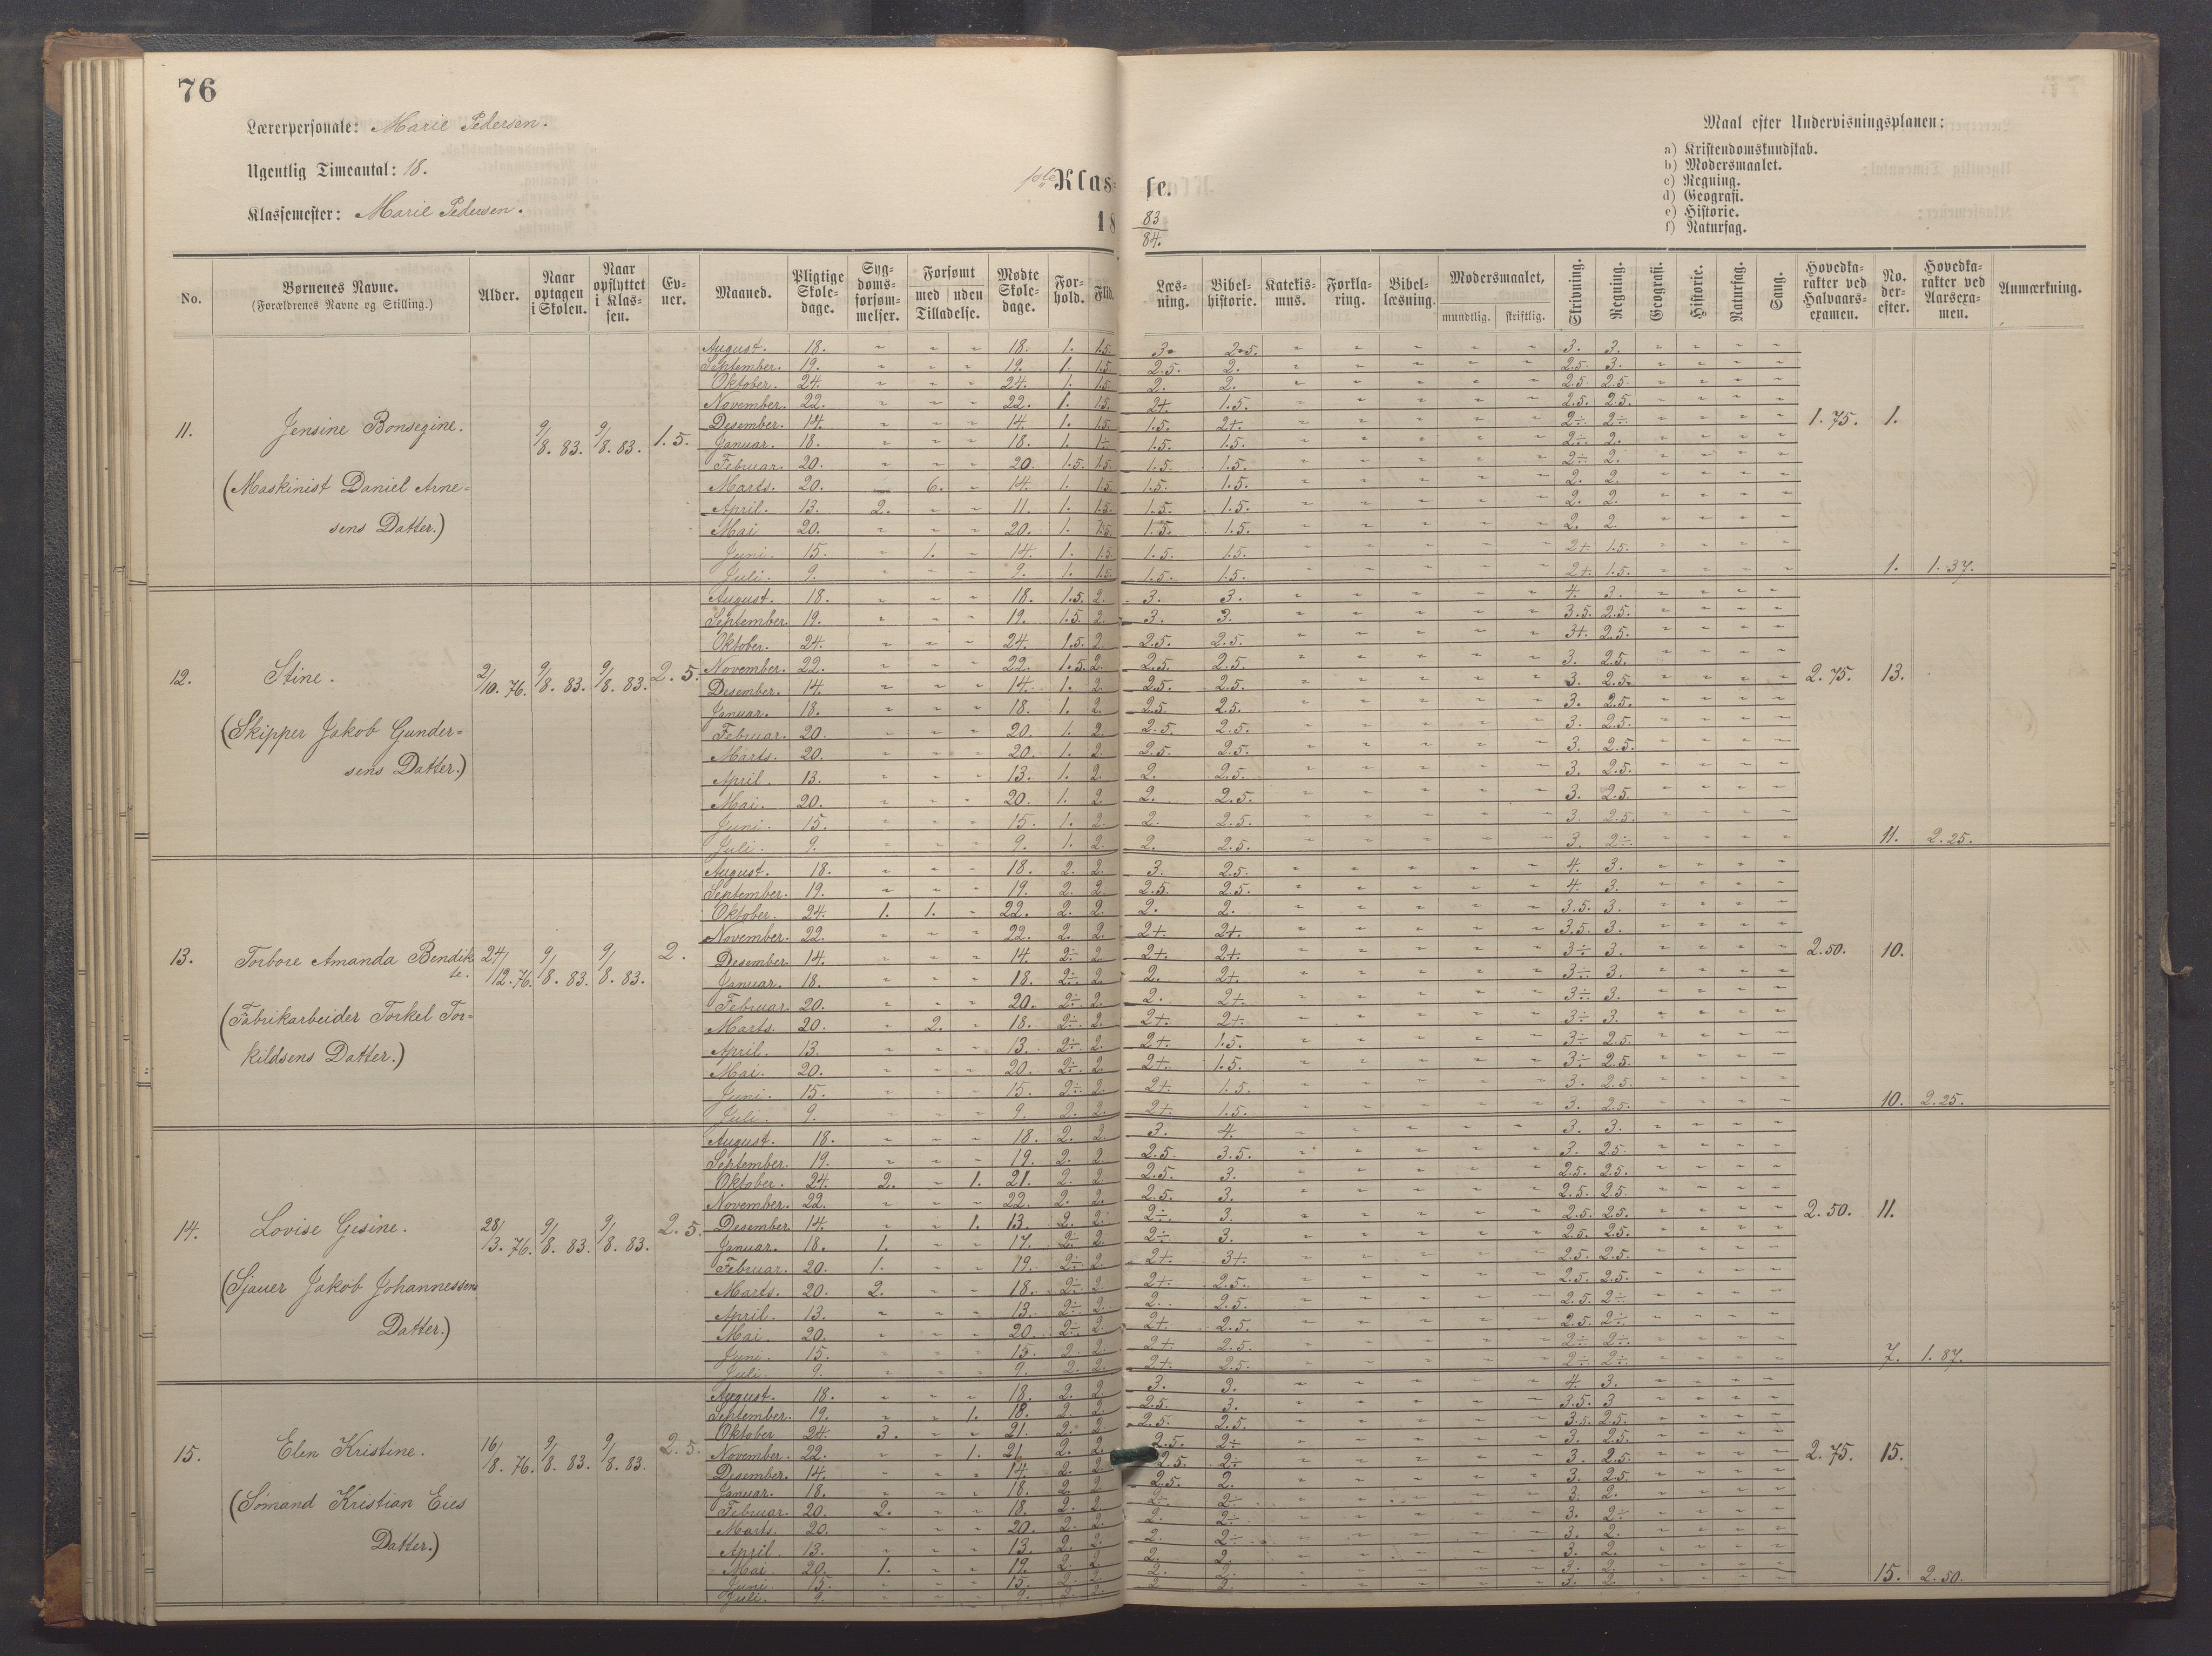 76
Lærerpersonale: Marie Pedersen.
Ugentlig Timeantal: 18.
Klassemester: Marie Pedersen.
1ste Klasse.
18 83/84.
Maal efter Undervisningsplanen:
a) Kristendomskundskab.
b) Modersmaalet.
c) Regning.
d) Geografi.
e) Historie.
f) Naturfag.
No. | Børnenes Navne. (Forældrenes Navne og Stilling.) | Alder. | Naar optagen i Skolen. | Naar opflyttet i Klassen. | Evner. | Maaned. | Pligtige Skoledage. | Sygdomsforsømmelser. | Forsømt med Tilladelse. | Forsømt uden Tilladelse. | Mødte Skoledage. | Forhold. | Flid. | Læsning. | Bibelhistorie. | Katekismus. | Forklaring. | Bibellæsning. | Modersmaalet, mundtlig. | skriftlig. | Skrivning. | Regning. | Geografi. | Historie. | Naturfag. | Sang. | Hovedkarakter ved Halvaarsexamen. | No. derefter. | Hovedkarakter ved Aarsexamen. | Anmærkning.
11. Jensine Bonsegine. 9/8. 83. 9/8. 83. 1.5. 1.75. 1.
(Maskinist Daniel Arnesens Datter.)
August. 18. - - - 18. 1. 1.5. 3. 2.5. - - - - - 3. 3. - - - -
September. 19. - - - 19. 1. 1.5. 2.5. 2. - - - - - 2.5. 3. - - - -
Oktober. 24. - - - 24. 1. 1.5. 2. 2. - - - - - 2.5. 2.5. - - - -
November. 22. - - - 22. 1. 1.5. 2+. 1.5. - - - - - 2.5. 2.5. - - - -
Desember. 14. - - - 14. 1. 1.5. 1.5. 2+. - - - - - 2÷. 2÷. - - - -
Januar. 18. - - - 18. 1. 1÷. 1.5. 1.5. - - - - - 2÷. 2. - - - -
Februar. 20. - - - 20. 1.5. 1.5. 1.5. 1.5. - - - - - 2÷. 2. - - - -
Marts. 20. - 6. - 14. 1. 1.5. 1.5. 1.5. - - - - - 2. 2. - - - -
April. 13. 2. - - 11. 1. 1.5. 1.5. 1.5. - - - - - 2. 2. - - - -
Mai 20. - - - 20. 1. 1.5. 1.5. 1.5. - - - - - 2. 2. - - - -
Juni. 15. - 1. - 14. 1. 1.5. 1.5. 1.5. - - - - - 2+. 1.5. - - - -
Juli. 9. - - - 9. 1. 1.5. 1.5. 1.5. - - - - - 2+. 1.5. - - - - 1. 1.37.
12. Stine. 2/10. 76. 9/8. 83. 9/8. 83. 2.5. 2.75. 13.
(Skipper Jakob Gundersens Datter.)
August. 18. - - - 18. 1.5. 2. 3. 3. - - - - - 4. 3. - - - -
September. 19. - - - 19. 1.5. 2. 3. 3. - - - - - 3.5. 2.5. - - - -
Oktober. 24. - - - 24. 1.5. 2. 2.5. 2.5. - - - - - 3+. 2.5. - - - -
November. 22. - - - 22. 1.5. 2. 2.5. 2.5. - - - - - 3. 2.5. - - - -
Desember. 14. - - - 14. 1. 2. 2.5. 2.5. - - - - - 3. 2.5. - - - -
Januar. 18. - - - 18. 1. 2. 2.5. 2.5. - - - - - 3. 2.5. - - - -
Februar. 20. - - - 20. 1. 2. 2.5. 2.5. - - - - - 3. 2.5. - - - -
Marts. 20. - - - 20. 1. 2. 2.5. 2.5. - - - - - 3. 2.5. - - - -
April. 13. - - - 13. 1. 2. 2. 2.5. - - - - - 3. 2.5. - - - -
Mai. 20. - - - 20. 1. 2. 2. 2.5. - - - - - 3. 2.5. - - - -
Juni. 15. - - - 15. 1. 2. 2. 2.5. - - - - - 3. 2.5. - - - -
Juli. 9. - - - 9. 1. 2. 2. 2.5. - - - - - 3. 2÷. - - - - 11. 2.25.
13. Torbore Amanda Bendikte. 24/12. 76. 9/8. 83. 9/8. 83. 2. 2.50. 10.
(Fabrikarbeider Torkel Torkildsens Datter.)
August. 18. - - - 18. 2. 2. 3. 2.5. - - - - - 4. 3. - - - -
September. 19. - - - 19. 2. 2. 2.5. 2.5. - - - - - 4. 3. - - - -
Oktober. 24. 1. 1. - 22. 2. 2. 2. 2. - - - - - 3.5. 3. - - - -
November. 22. - - - 22. 2. 2. 2+. 2+. - - - - - 3.5. 3. - - - -
Desember. 14. - - - 14. 2÷. 2. 2+. 2+. - - - - - 3÷. 3. - - - -
Januar. 18. - - - 18. 2÷. 2. 2. 2+. - - - - - 3÷. 3. - - - -
Februar. 20. - - - 20. 2÷. 2. 2. 2+. - - - - - 3÷. 3. - - - -
Marts. 20. - 2. - 18. 2÷. 2. 2+. 2+. - - - - - 3÷. 3. - - - -
April. 13. - - - 13. 2÷. 2. 2+. 1.5. - - - - - 3÷. 2.5. - - - -
Mai. 20. - - - 20. 2÷. 2. 2+. 1.5. - - - - - 3÷. 2.5. - - - -
Juni. 15. - - - 15. 2÷. 2. 2+. 1.5. - - - - - 3. 2.5. - - - -
Juli. 9. - - - 9. 2. 2. 2+. 1.5. - - - - - 3. 2.5. - - - - 10. 2.25.
14. Lovise Gesine. 28/3. 76. 9/8. 83. 9/8. 83. 2.5. 2.50. 11.
(Sjauer Jakob Johannessens Datter.)
August. 18. - - - 18. 2. 2. 3. 4. - - - - - 3. 3. - - - -
September. 19. - - - 19. 2. 2. 2.5. 3.5. - - - - - 3. 2.5. - - - -
Oktober. 24. 2. - 1. 21. 2. 2. 2.5. 3. - - - - - 2.5. 2.5. - - - -
November. 22. - - - 22. 2. 2. 2.5. 3. - - - - - 2.5. 2.5. - - - -
Desember 14. - - 1. 13. 2. 2. 2÷. 3. - - - - - 2.5. 2.5. - - - -
Januar. 18. 1. - - 17. 2÷. 2. 2÷. 3. - - - - - 2.5. 2.5. - - - -
Februar. 20. 1. - - 19. 2÷. 2. 2+. 3+. - - - - - 2.5. 2.5. - - - -
Marts. 20. 2. - - 18. 2÷. 2. 2+. 2.5. - - - - - 2.5. 2.5. - - - -
April. 13. - - - 13. 2÷. 2. 2. 2.5. - - - - - 2.5. 2÷. - - - -
Mai. 20. - - - 20. 2÷. 2. 2+. 2.5. - - - - - 2.5. 2÷. - - - -
Juni. 15. - - - 15. 2. 2. 2+. 2.5. - - - - - 2÷. 2÷. - - - -
Juli. 9. - - - 9. 2. 2. 2+. 2.5. - - - - - 2÷. 2÷. - - - - 7. 1.87.
15. Elen Kristine. 16/8. 76. 9/8. 83. 9/8. 83. 2.5. 2.75. 15.
(Sömand Kristian Eies Datter.)
August. 18. - - - 18. 2. 2. 3. 3. - - - - - 4. 3. - - - -
September. 19. - - 1. 18. 2. 2. 2.5. 3. - - - - - 3.5. 3 - - - -
Oktober 24. 3. - - 21. 2. 2. 2.5. 2.5. - - - - - 3.5. 2.5. - - - -
November. 22. - - 1. 21 2. 2. 2.5. 2÷ - - - - - 3. 2.5. - - - -
Desember. 14. - - - 14. 2. 2. 2.5. 2÷ - - - - - 3. 2.5. - - - -
Januar. 18. - - - 18. 2. 2. 2.5. 2. - - - - - 3. 2.5. - - - -
Februar. 20. 2. - - 18. 2. 2. 2÷. 2÷ - - - - - 3. 2. - - - -
Marts. 20. - - - 20. 2. 2. 2. 2÷. - - - - - 3. 2÷. - - - -
April 13. - - - 13. 2. 2. 2. 2÷. - - - - - 3. 2. - - - -
Mai. 20. 1. - - 19. 2. 2. 2. 2. - - - - - 3. 2. - - - -
Juni. 15. - - - 15. 2. 2. 2. 2. - - - - - 3. 2. - - - -
Juli. 9. - - - 9. 2. 2. 2 2. - - - - - 3. 2. - - - - 15. 2.50.